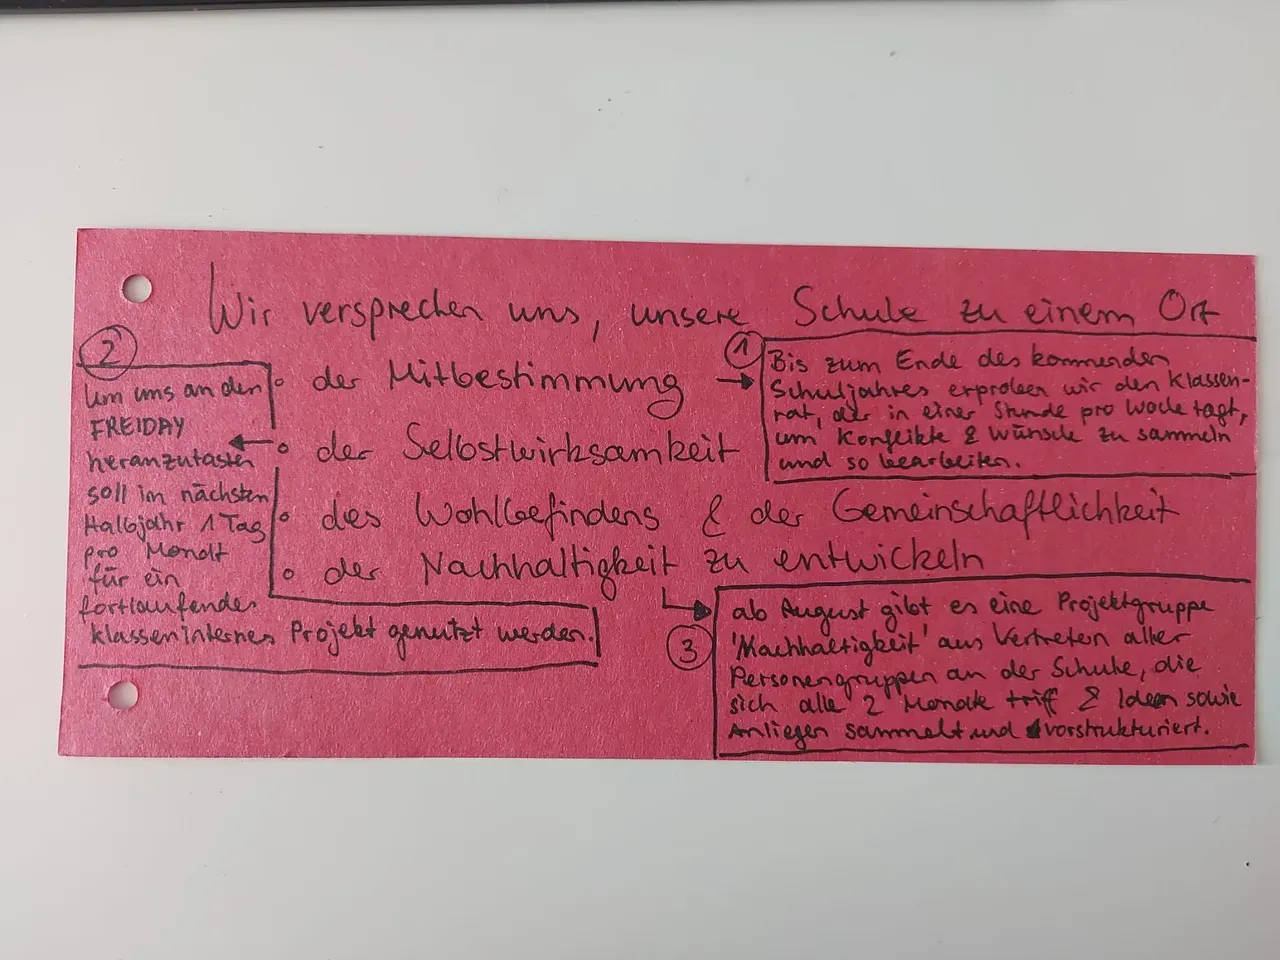 Wir versprechen uns, unsere Schule zu einem Ort
◦ der Mitbestimmung →
◦ der Selbstwirksamkeit
◦ des Wohlbefindens & der Gemeinschaftlichkeit
◦ der Nachhaltigkeit zu entwickeln
1
Bis zum Ende des kommenden
Schuljahres erproben wir den Klassen-
rat, der in einer Stunde pro Woche tagt,
um Konflikte & Wünsche zu sammeln
und so bearbeiten.
2
Um uns an den
FREIDAY
heranzutasten
soll im nächsten
Halbjahr 1 Tag
pro Monat
für ein
fortlaufendes
klasseninternes Projekt genutzt werden.
3
ab August gibt es eine Projektgruppe
'Nachhaltigkeit' aus Vertretern aller
Personengruppen an der Schule, die
sich alle 2 Monate triff & Ideen sowie
Anliegen sammelt und vorstrukturiert.